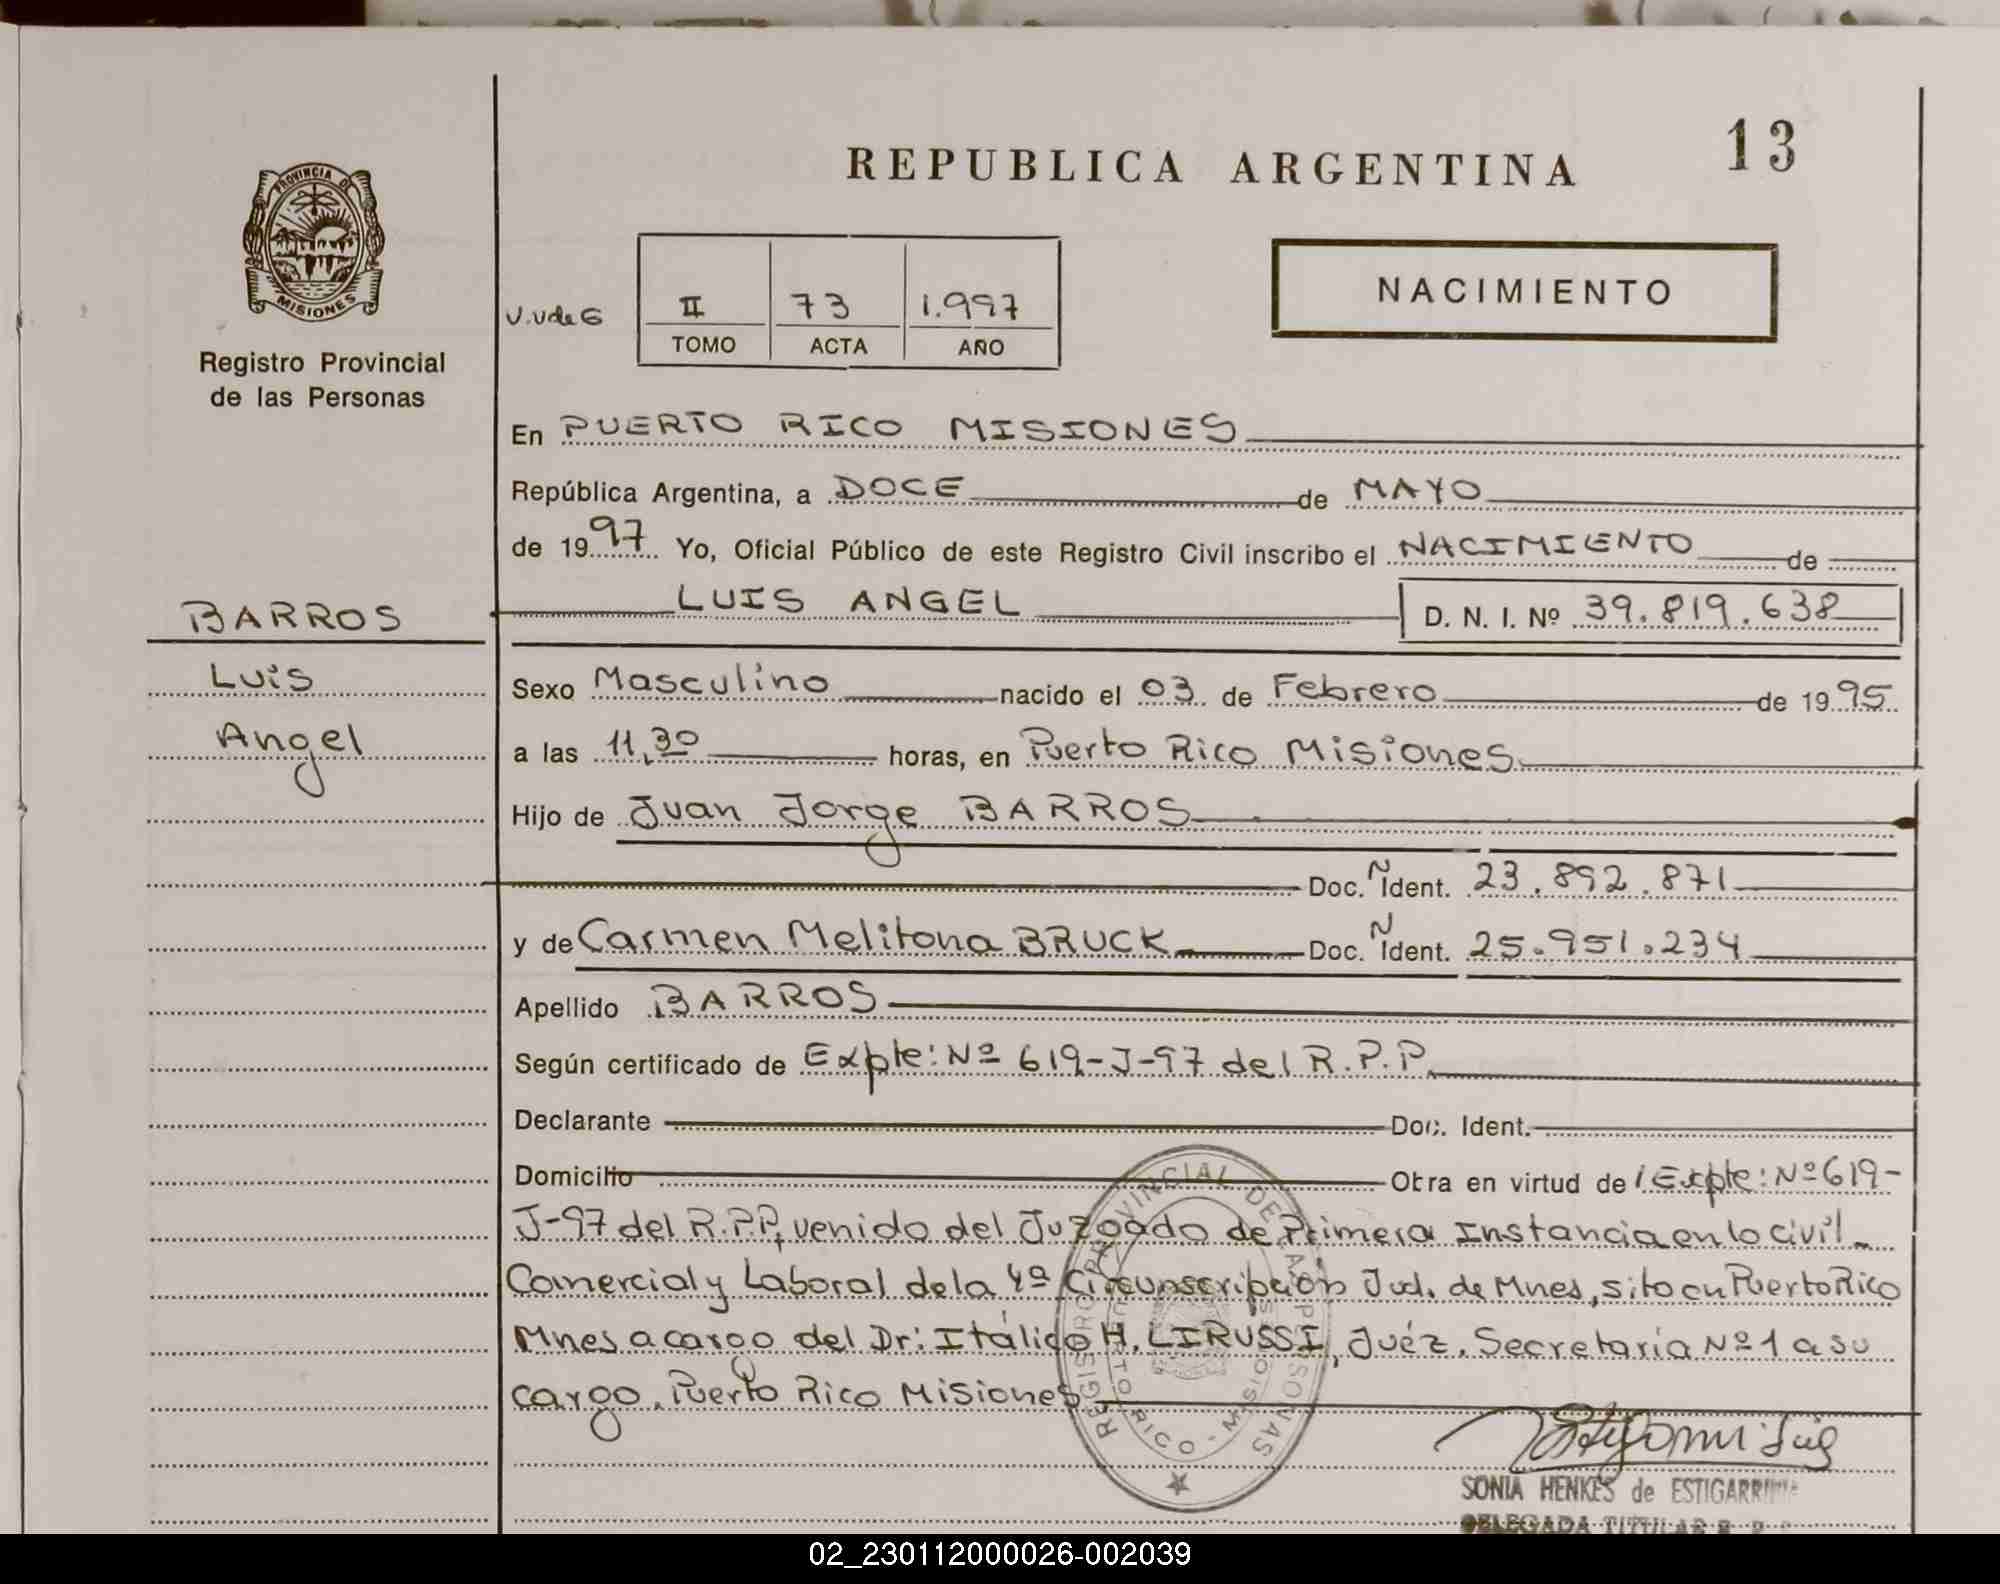 REPUBLICA ARGENTINA
13
PROVINCIA DE
MISIONES
Registro Provincial
de las Personas
V.V de G
II 73 1.997
TOMO ACTA AÑO
NACIMIENTO
En PUERTO RICO MISIONES
República Argentina, a DOCE de MAYO
de 1997 Yo, Oficial Público de este Registro Civil inscribo el NACIMIENTO de
BARROS
LUIS ANGEL D. N. I. Nº 39.819.638
Luis
Sexo Masculino nacido el 03 de Febrero de 1995
Angel
a las 11,30 horas, en Puerto Rico Misiones
Hijo de Juan Jorge BARROS
Doc. Ñ Ident. 23.892.871
y de Carmen Melitona BRUCK Doc. Ñ Ident. 25.951.234
Apellido BARROS
Según certificado de Expte: Nº 619-J-97 del R.P.P.
Declarante Doc. Ident.
Domicilio Obra en virtud de / Expte: Nº 619-
J-97 del R.P.P, venido del Juzgado de Primera Instancia en lo civil
Comercial y Laboral de la 4ª Circunscripción Jud. de Mnes, sito en Puerto Rico
Mnes a cargo del Dr: Itálico H. LIRUSSI, Juéz, Secretaría Nº 1 a su
cargo. Puerto Rico Misiones
REGISTRO PROVINCIAL DE LAS PERSONAS
PUERTO RICO - MISIONES
SONIA HENKES de ESTIGARRIBIA
DELEGADA TITULAR R. P.
02_230112000026-002039